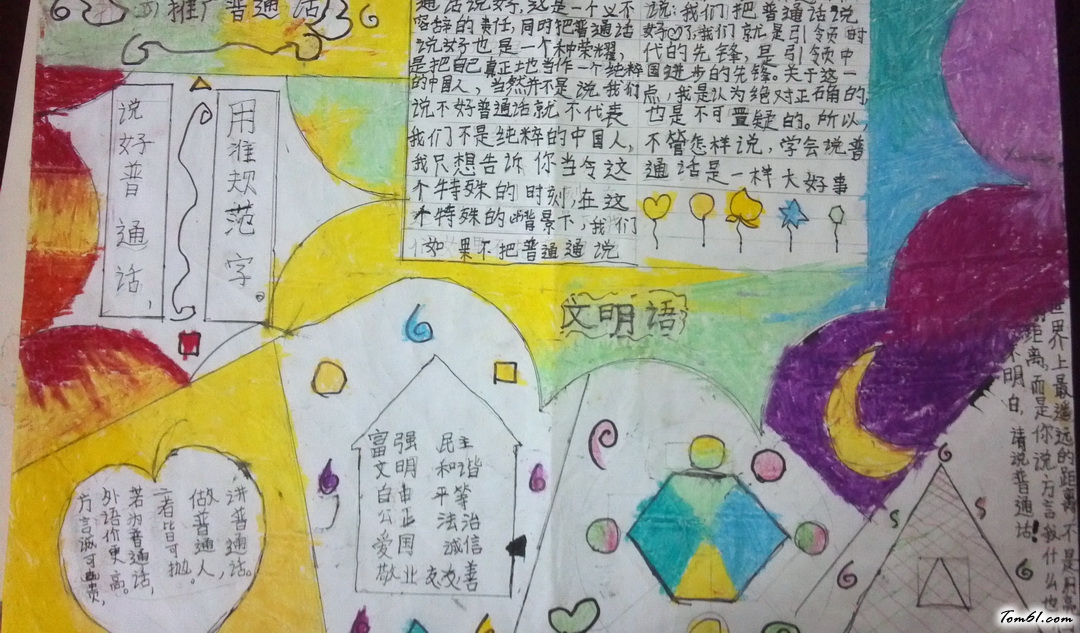 推广普通话
说好普通话，
用准规范字。
通话说好，这是一个义不
容辞的责任，同时把普通话
说好也是一个种荣耀，
是把自己真正地当作一个纯粹
的中国人，当然并不是说我们
说不好普通话就不代表
我们不是纯粹的中国人，
我只想告诉你当今这
个特殊的时刻，在这
个特殊的背景下，我们
如果不把普通通说
说：我们把普通话说
好了，我们就是引领时
代的先锋，是引领中
国进步的先锋。关于这一
点，我是认为绝对正确的，
也是不可置疑的。所以，
不管怎样说，学会说普
通话是一样大好事
文明语
富强 民主
文明 和谐
自由 平等
公正 法治
爱国 诚信
敬业 友善
讲普通话。
做普通人，
二者皆可抛。
若为普通话，
外语价更高。
方言诚可贵，
世界上最遥远的距离不是
距离，而是你说方言我什么也
不明白，请说普通话！
Tom61.com